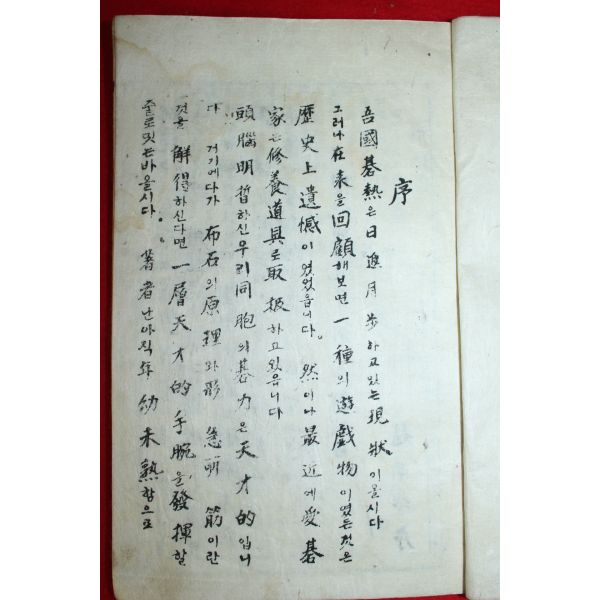 序
吾國碁熱은 日進月步하고있는 現狀이올시다
그러나 在來을 回顧해보면 一種의 遊戱物이였든것은
歷史上 遺憾이였었읍니다。 然이나 最近에 愛碁
家는 修養道具로 取扱하고있읍니다
頭腦明晳하신 우리同胞의 碁力은 天才的입니
다 거기에다가 布石의 原理와 形 筋이란
것을 解得하신다면 一層天才的手腕을 發揮할
줄로밋는바올시다。 著者난아직 幼未熟함으로